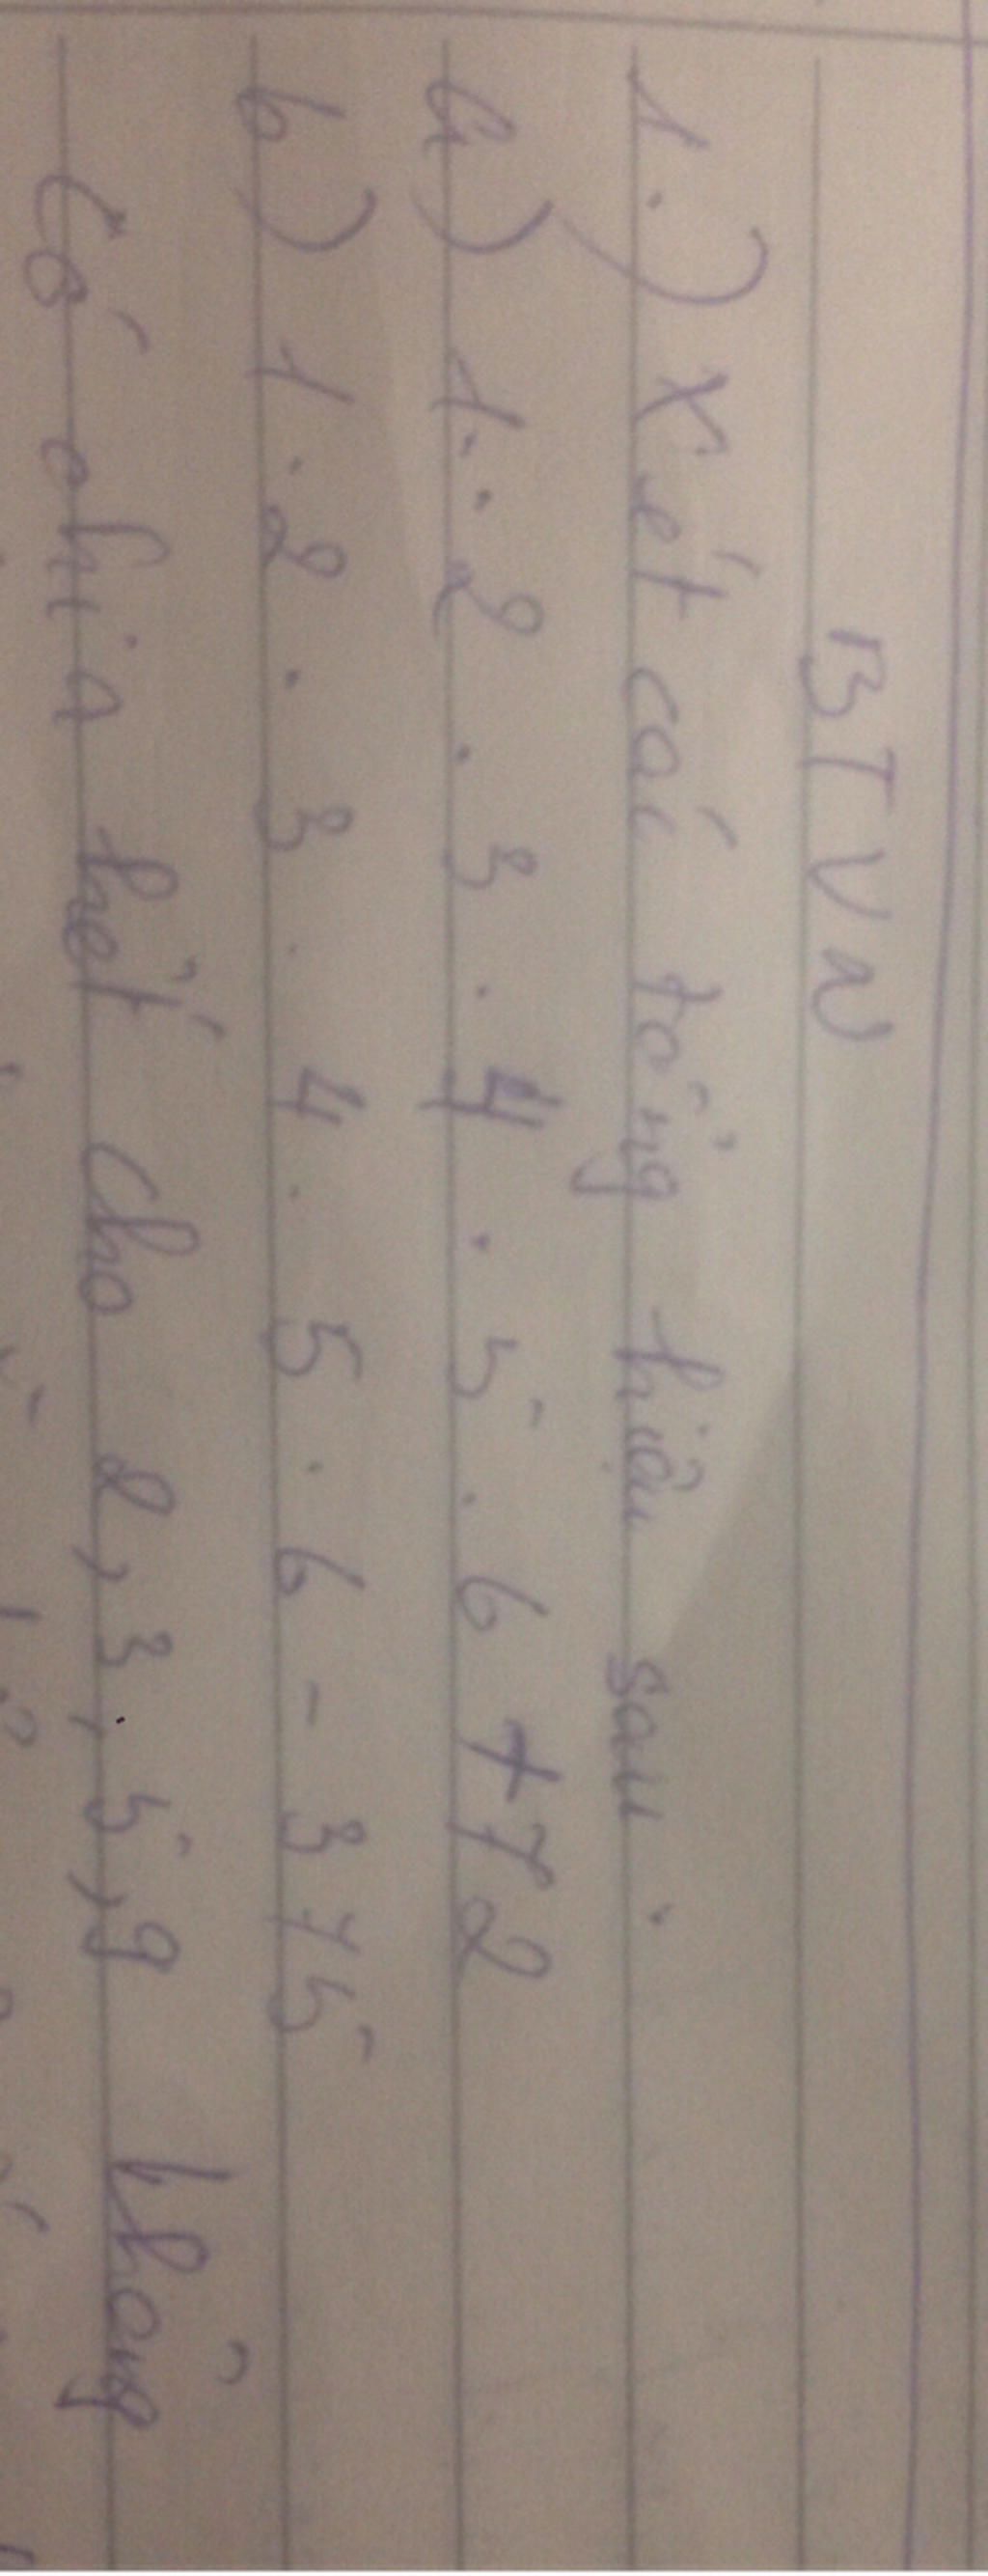 BTVN
1.) Xét các tổng hiệu sau.
a) 1.2.3.4.5.6+72
b) 1.2.3.4.5.6-375
Có chia hết cho 2,3,5,9 không